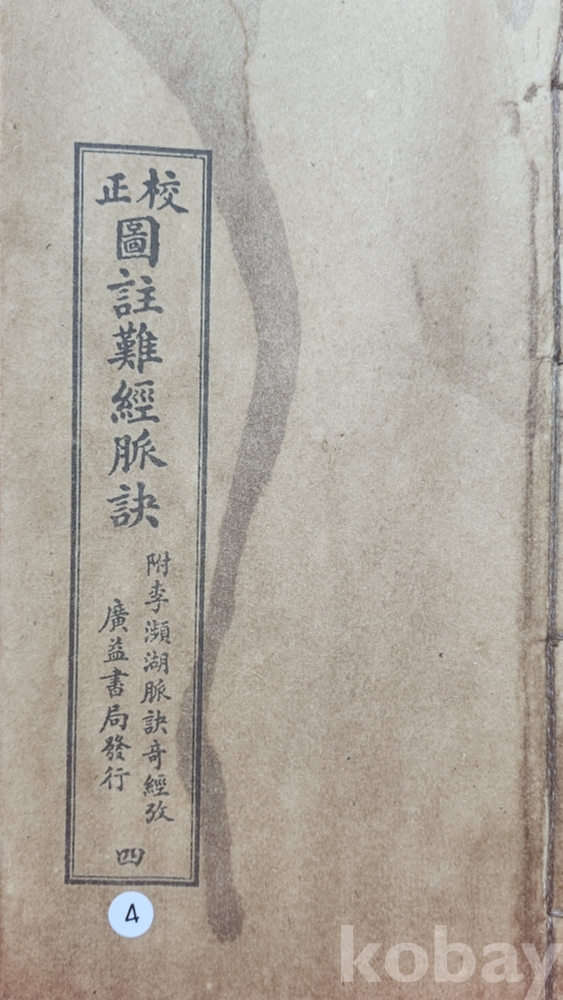 校正
圖註難經脈訣
附李瀕湖脈訣奇經攷
廣益書局發行
四
4
kobay